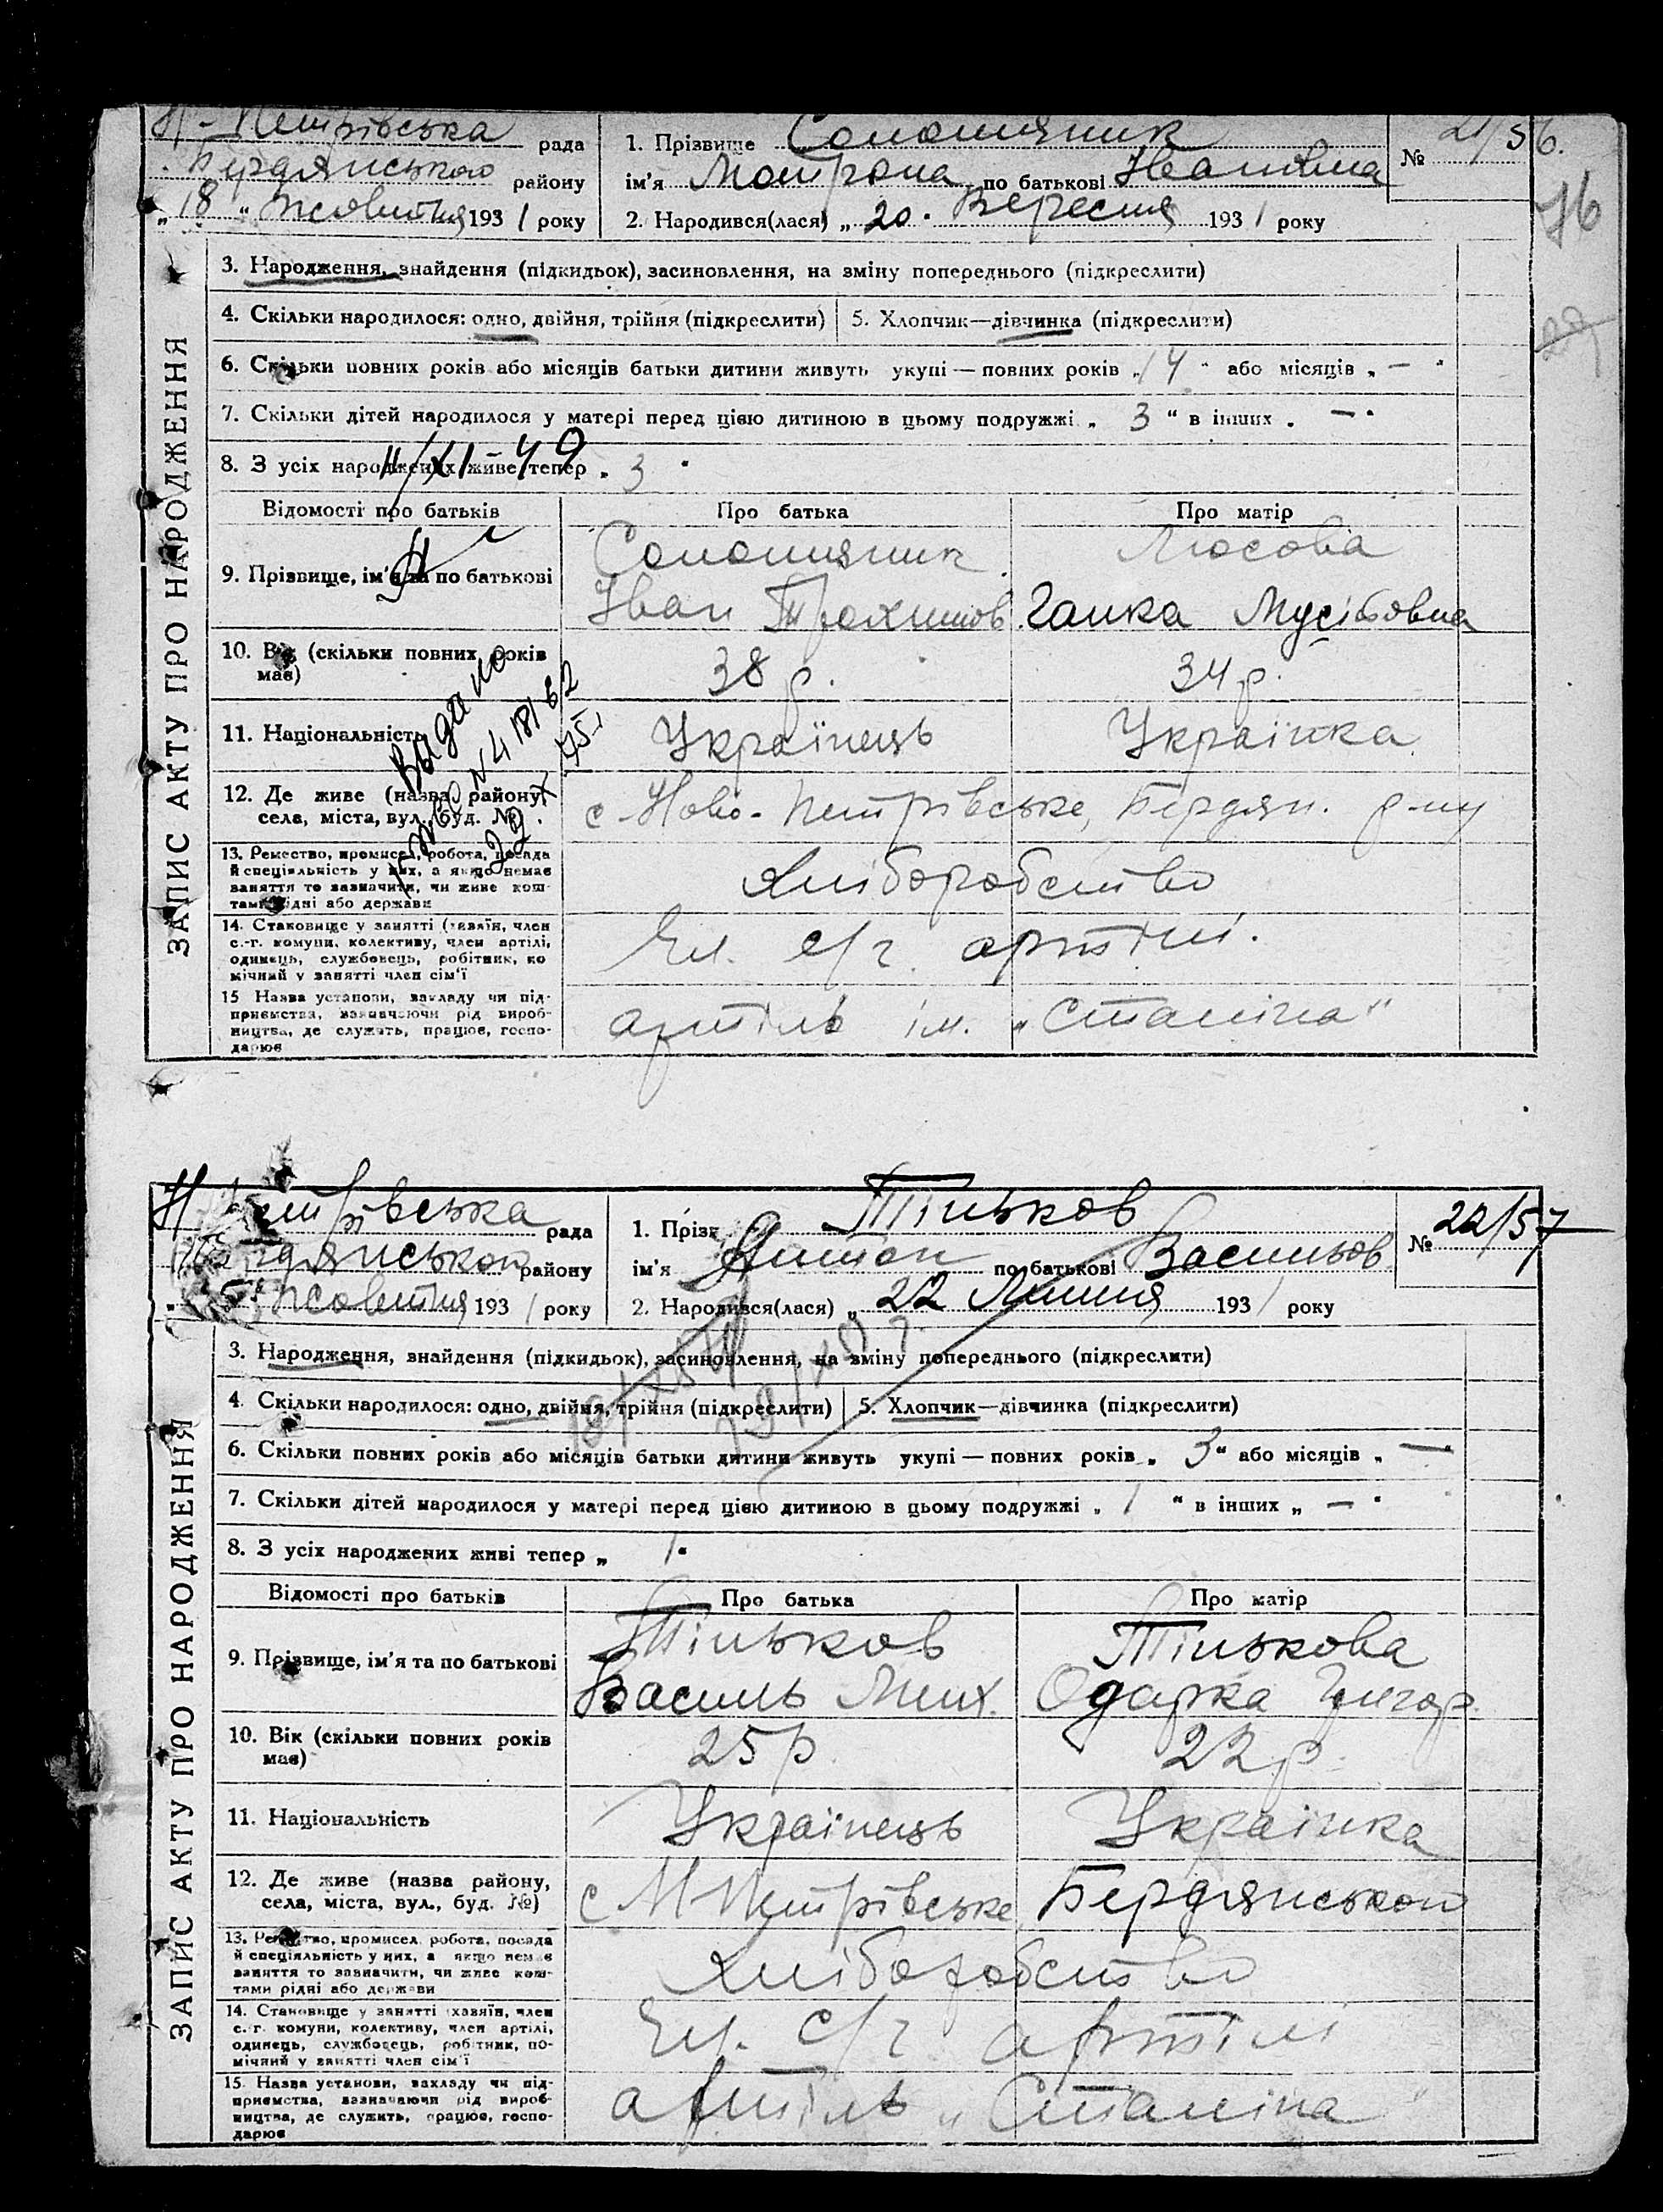 Н-Петрівська рада
Бердянського району
„18" Жовтня 1931 року
1. Прізвище Соломяник
ім'я Мотрона по батькові Іванівна
2. Народився(лася) „20" Вересня 1931 року
№ 21/56.
76
ЗАПИС АКТУ ПРО НАРОДЖЕННЯ
3. Народження, знайдення (підкидьок), засиновлення, на зміну попереднього (підкреслити)
4. Скільки народилося: одно, двійня, трійня (підкреслити) 5. Хлопчик—дівчинка (підкреслити)
6. Скільки повних років або місяців батьки дитини живуть укупі — повних років „14" або місяців „—"
7. Скільки дітей народилося у матері перед цією дитиною в цьому подружжі „3" в інших „—"
8. З усіх народжених живе тепер „3"
11/XI-49
Відомості про батьків Про батька Про матір
9. Прізвище, ім'я та по батькові
Соломяник Люсова
Іван Трохимов. Ганка Мусіївовна
10. Вік (скільки повних років має) 38 р. 34 р.
11. Національність Українець Українка
Видано
12. Де живе (назва району, села, міста, вул., буд. №) с Ново-Петрівське, Бердян. р-ну
13. Ремество, промисел, робота, посада й спеціяльність у них, а якщо немає заняття то зазначити, чи живе коштами рідні або держави
Хліборобство
14. Становище у занятті (хазяїн, член с.-г. комуни, колективу, член артілі, одинець, службовець, робітник, помічний у занятті член сім'ї
Чл. с/г. артілі.
15 Назва установи, закладу чи підприємства, зазначаючи рід виробництва, де служить, працює, господарює
артіль ім. „Сталіна"
Н-Петрівська рада
Бердянського району
Жовтня 1931 року
1. Прізв Тіньков
ім'я Антон по батькові Васильов
2. Народився(лася) „22 Липня 1931 року
№ 22/57
ЗАПИС АКТУ ПРО НАРОДЖЕННЯ
3. Народження, знайдення (підкидьок), засиновлення, на зміну попереднього (підкреслити)
4. Скільки народилося: одно, двійня, трійня (підкреслити) 5. Хлопчик—дівчинка (підкреслити)
6. Скільки повних років або місяців батьки дитини живуть укупі — повних років „3" або місяців „—"
7. Скільки дітей народилося у матері перед цією дитиною в цьому подружжі „1" в інших „—"
8. З усіх народжених живі тепер „1"
Відомості про батьків Про батька Про матір
9. Прізвище, ім'я та по батькові
Тіньков Тінькова
Василь Мих. Одарка Григор.
10. Вік (скільки повних років має) 25 р 22 р.
11. Національність Українець Українка
12. Де живе (назва району, села, міста, вул., буд. №) с Н Петрівське Бердянського
13. Ремество, промисел, робота, посада й спеціяльність у них, а якщо немає заняття то зазначити, чи живе коштами рідні або держави
Хліборобство
14. Становище у занятті (хазяїн, член с.-г. комуни, колективу, член артілі, одинець, службовець, робітник, помічний у занятті член сім'ї
Чл. с/г артілі
15. Назва установи, закладу чи підприємства, зазначаючи рід виробництва, де служить, працює, господарює
артіль „Сталіна"